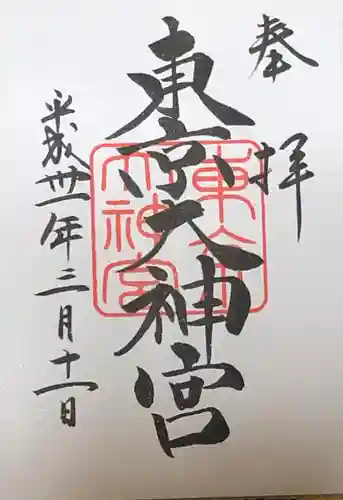 奉拝
東京大神宮
平成卅一年三月十一日
東京大神宮